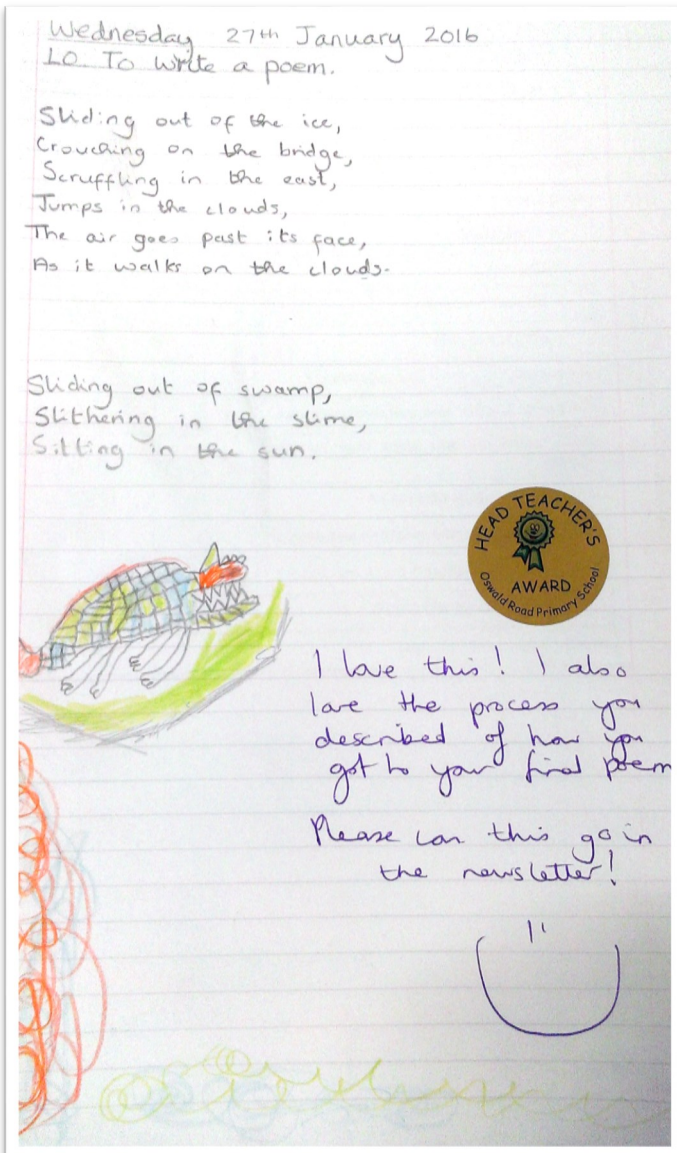 Wednesday 27th January 2016
LO. To write a poem.
Sliding out of the ice,
Crouching on the bridge,
Scruffling in the east,
Jumps in the clouds,
The air goes past its face,
As it walks on the clouds.
Sliding out of swamp,
Slithering in the slime,
Sitting in the sun.
HEAD TEACHER'S
AWARD
Oswald Road Primary School
I love this! I also
love the process you
described of how you
got to your final poem
Please can this go in
the newsletter!